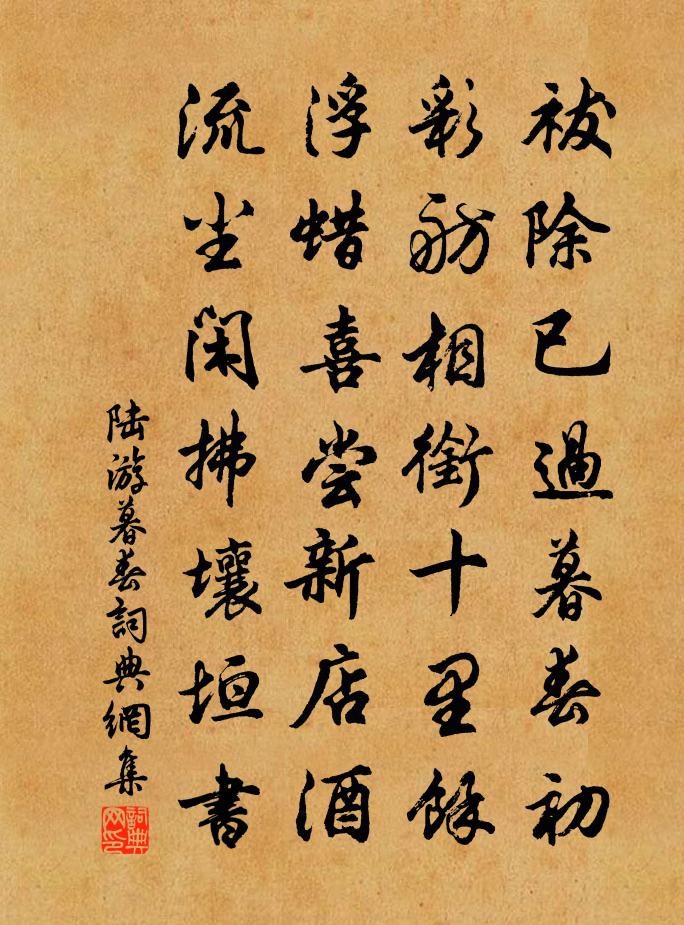 祓除已過暮春初
彩舫相銜十里餘
浮蜡喜尝新店酒
流尘閑拂壤垣書
陆游暮春詞典網集
詞典网印